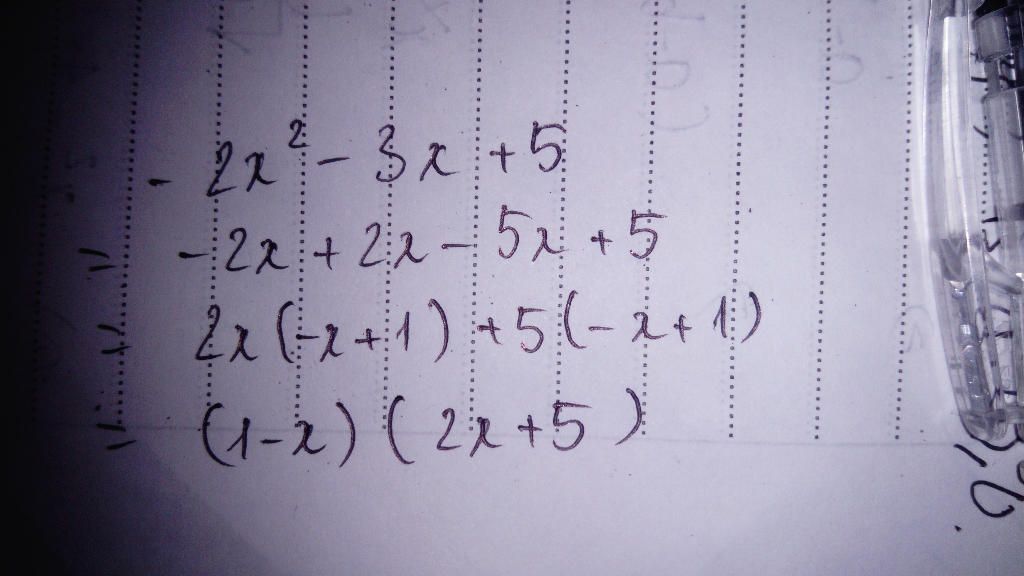 - 2x² - 3x + 5
= - 2x + 2x - 5x + 5
= 2x (-x + 1) + 5 (-x + 1)
= (1 - x) (2x + 5)